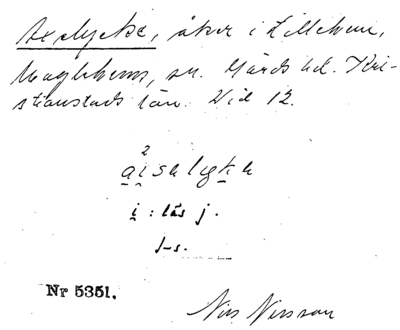 Axelycke, åker i Lillehem,
Maglehems, sn. Gärds hd. Kri-
stianstads län. Vid 12.
2
i : läs j.
1-s.
Nr 5351.
Nils Nilsson